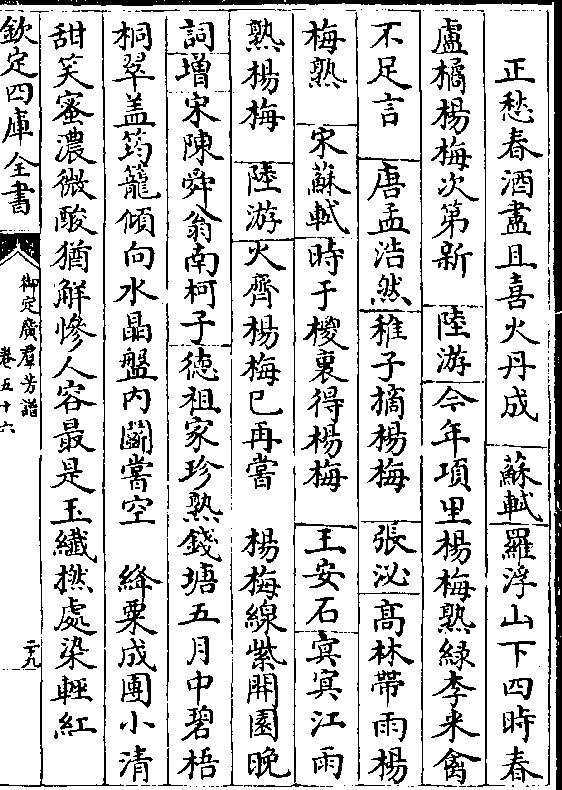 正愁春酒盡且喜火丹成　蘇軾羅浮山下四時春
盧橘楊梅次第新　陸游今年項里楊梅熟緑李来禽
不足言　唐孟浩然稚子摘楊梅　張泌髙林帶雨楊
梅熟　宋蘇軾時于㮣裏得楊梅　王安石㝠㝠江雨
熟楊梅　陸游火齊楊梅已再嘗　楊梅線紫開園晚
詞增宋陳舜翁南柯子德祖家珍熟錢塘五月中碧梧
桐翠盖筠籠傾向水晶盤内鬭嘗空　絳粟成團小清
甜笑蜜濃微酸猶解惱人容最是玉纖撚處染輕紅
欽定四庫全書
御定廣羣芳譜
卷五十六
二九